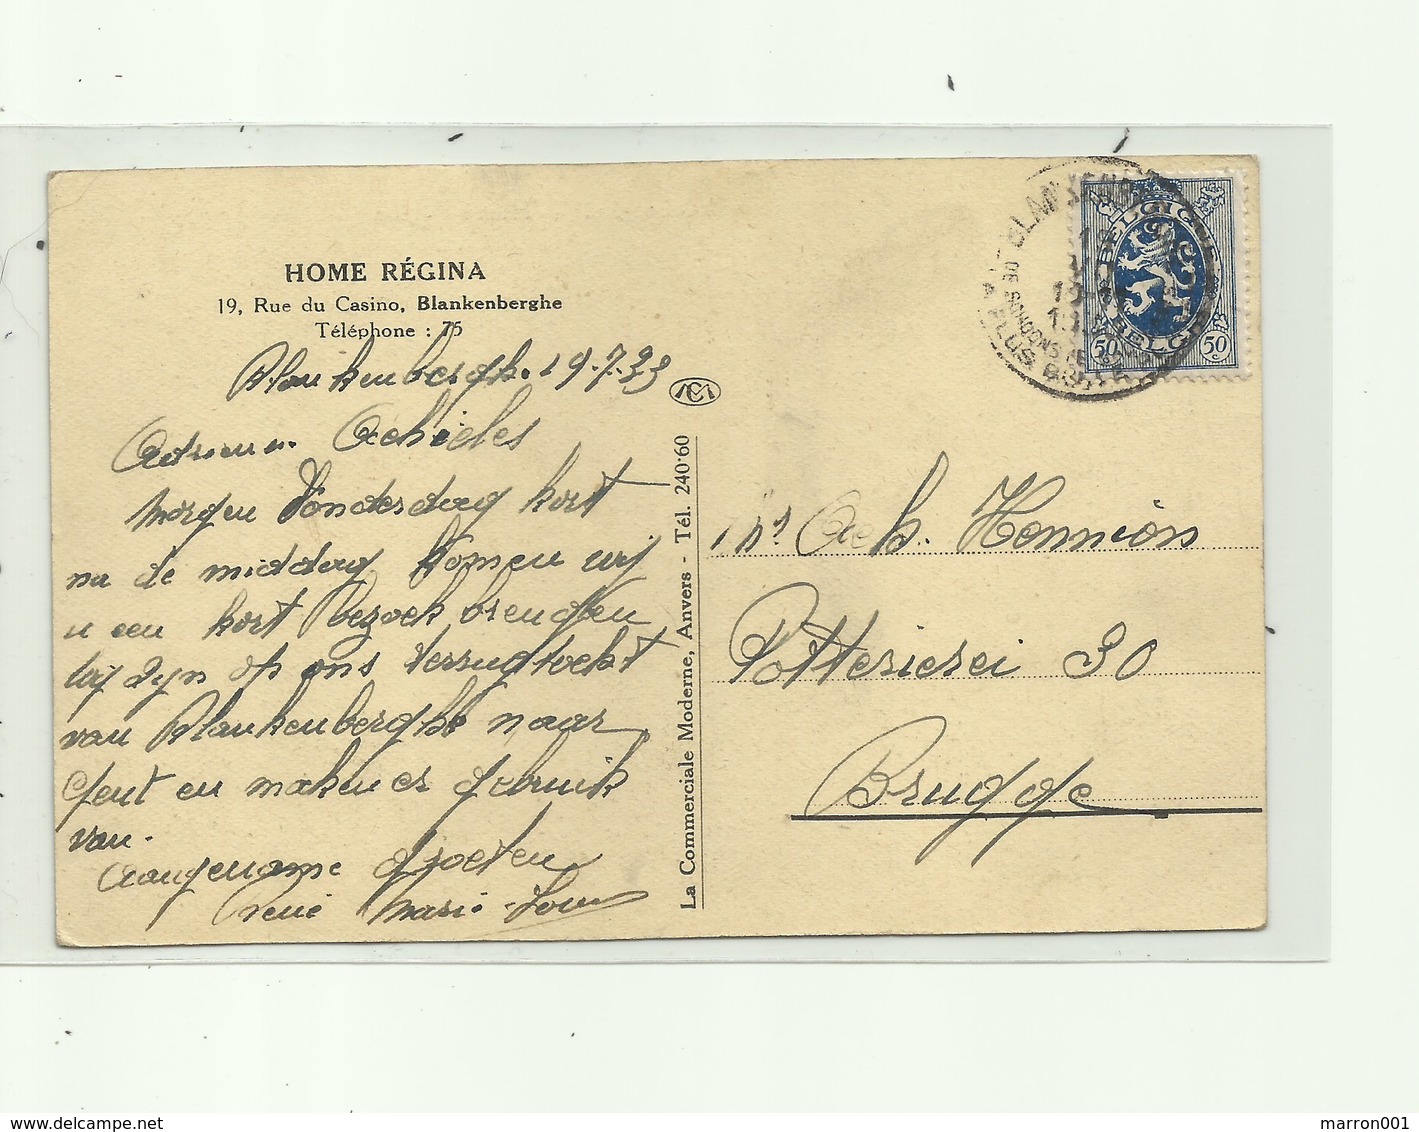 HOME RÉGINA
19, Rue du Casino, Blankenberghe
Téléphone : 75
Blankenbergh. 19.7.33
Adrienn. Achieles
morgen Donderdag kort
na de middag komen wij
u een kort bezoek brengen
wij zijn op ons terrugtocht
van Blankenberghe naar
Gent en maken er gebruik
van.
Aangename groeten
René Marie-Lou
MC
La Commerciale Moderne, Anvers - Tél. 240.60
BELGIQUE
BELGIË
50 c 50 c
Mr Ach. Honnion
Potterierei 30
Brugge
marron001